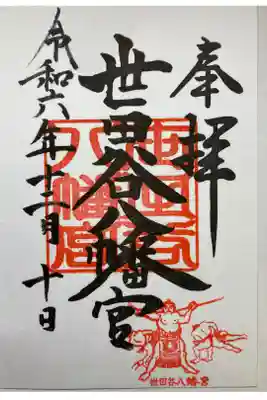 奉拝
世田谷八幡宮
令和六年十二月十日
世田谷八幡宮
世田谷八幡宮